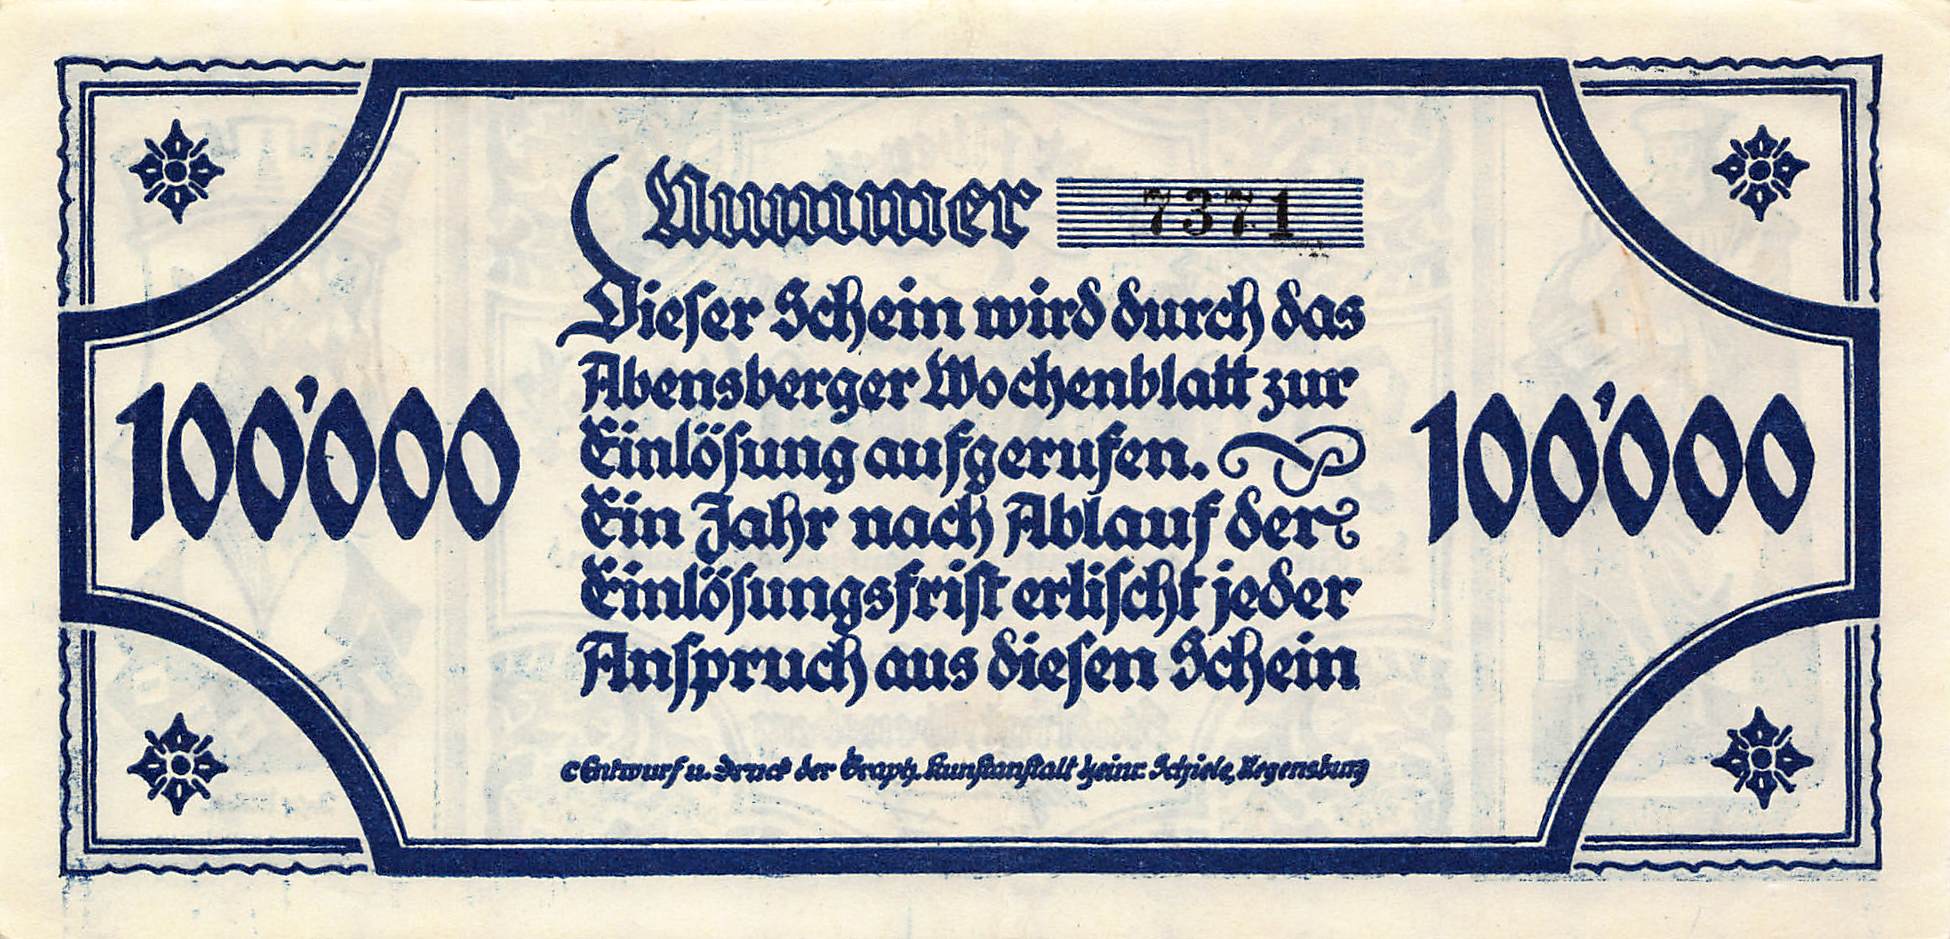 Nummer 7371
Dieser Schein wird durch das
Abensberger Wochenblatt zur
Einlösung aufgerufen.
Ein Jahr nach Ablauf der
Einlösungsfrist erlischt jeder
Anspruch aus diesen Schein
100'000
100'000
Entwurf u. Druck der Graph. Kunstanstalt Heinr. Schiele, Regensburg